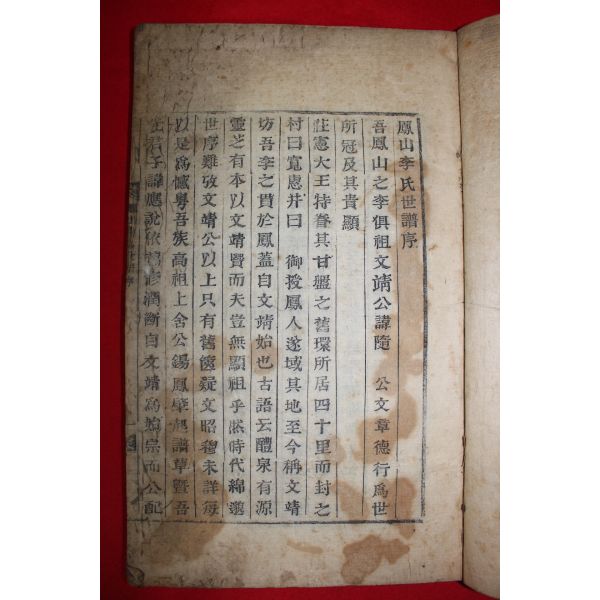 鳳山李氏世譜序
吾鳳山之李俱祖文靖公諱隨 公文章德行爲世
所冠及其貴顯
莊憲大王特眷其甘盤之舊環所居四十里而封之
村曰寬憲井曰 御授鳳人遂域其地至今稱文靖
坊吾李之貫於鳳蓋自文靖始也古語云醴泉有源
靈芝有本以文靖賢而天豈無顯祖乎然時代綿邈
世序難攷文靖公以上只有舊篋疑文昭穆未詳每
以是爲憾粤吾族高祖上舍公錫鳳肇起譜草曁吾
子諱應 依 修潤斷自文靖爲始宗而公配